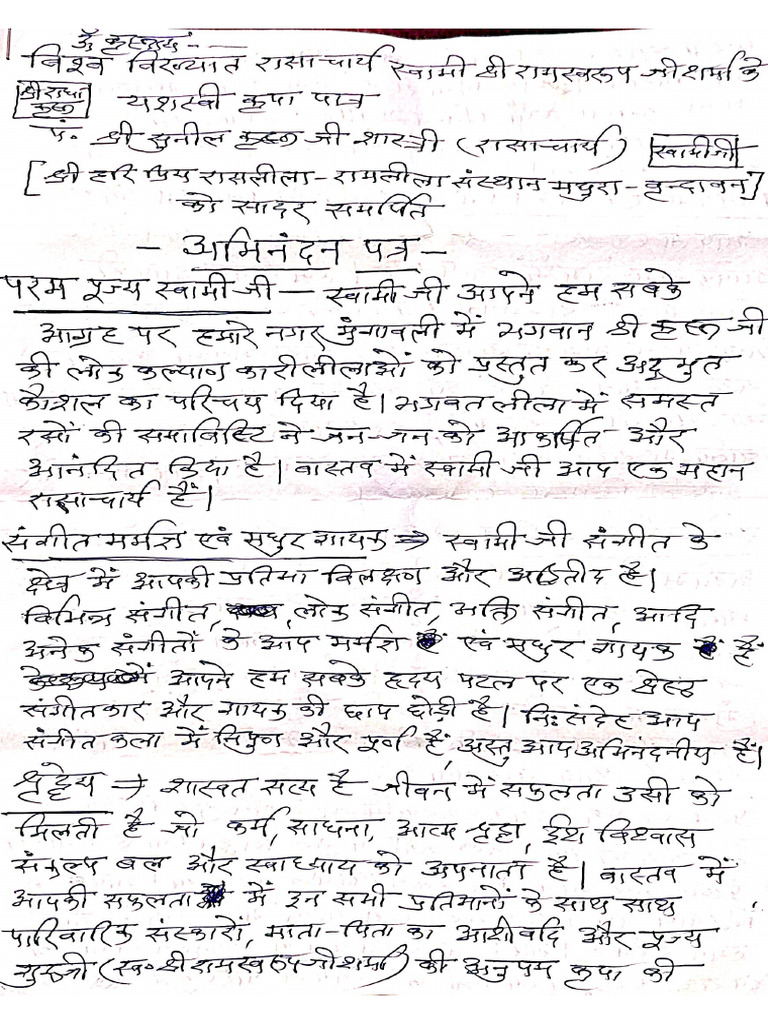 ॐ कृष्णायं -
विश्व विख्यात रासाचार्य स्वामी श्री रामस्वरूप जी शर्मा के
श्री राधा कृष्ण
यशस्वी कृपा पात्र
पं. श्री सुनील कृष्ण जी शास्त्री (रासाचार्य) स्वामीजी
[श्री हरि प्रिय रासलीला - रामलीला संस्थान मथुरा - वृन्दावन]
को सादर समर्पित
- अभिनंदन पत्र -
परम पूज्य स्वामी जी - स्वामी जी आपने हम सबके
आग्रह पर हमारे नगर मुंगावली में भगवान श्री कृष्ण जी
की लोक कल्याण कारी लीलाओं को प्रस्तुत कर अद्भुत
कौशल का परिचय दिया है। भगवत लीला में समस्त
रसों की समाविष्टि ने जन-जन को आकर्षित और
आनंदित किया है। वास्तव में स्वामी जी आप एक महान
रासाचार्य हैं।
संगीत मर्मज्ञ एवं मधुर गायक → स्वामी जी संगीत के
क्षेत्र में आपकी प्रतिभा विलक्षण और अद्वितीय है।
विभिन्न संगीत, लोक संगीत, भक्ति संगीत, आदि
अनेक संगीतों के आप मर्मज्ञ एवं मधुर गायक हैं
आपने हम सबके हृदय पटल पर एक श्रेष्ठ
संगीतकार और गायक की छाप छोड़ी है। निःसंदेह आप
संगीत कला में निपुण और पूर्ण हैं, अस्तु आप अभिनंदनीय हैं।
श्रृद्धेय → शास्वत सत्य है जीवन में सफलता उसी को
मिलती है जो कर्म, साधना, आत्म श्रृद्धा, ईश विश्वास
संकल्प बल और स्वाध्याय को अपनाता है। वास्तव में
आपकी सफलता में इन सभी प्रतिमानों के साथ साथ
पारिवारिक संस्कारों, माता-पिता का आशीर्वाद और पूज्य
गुरुजी (स्व० श्री रामस्वरूप जी शर्मा) की अनुपम कृपा की